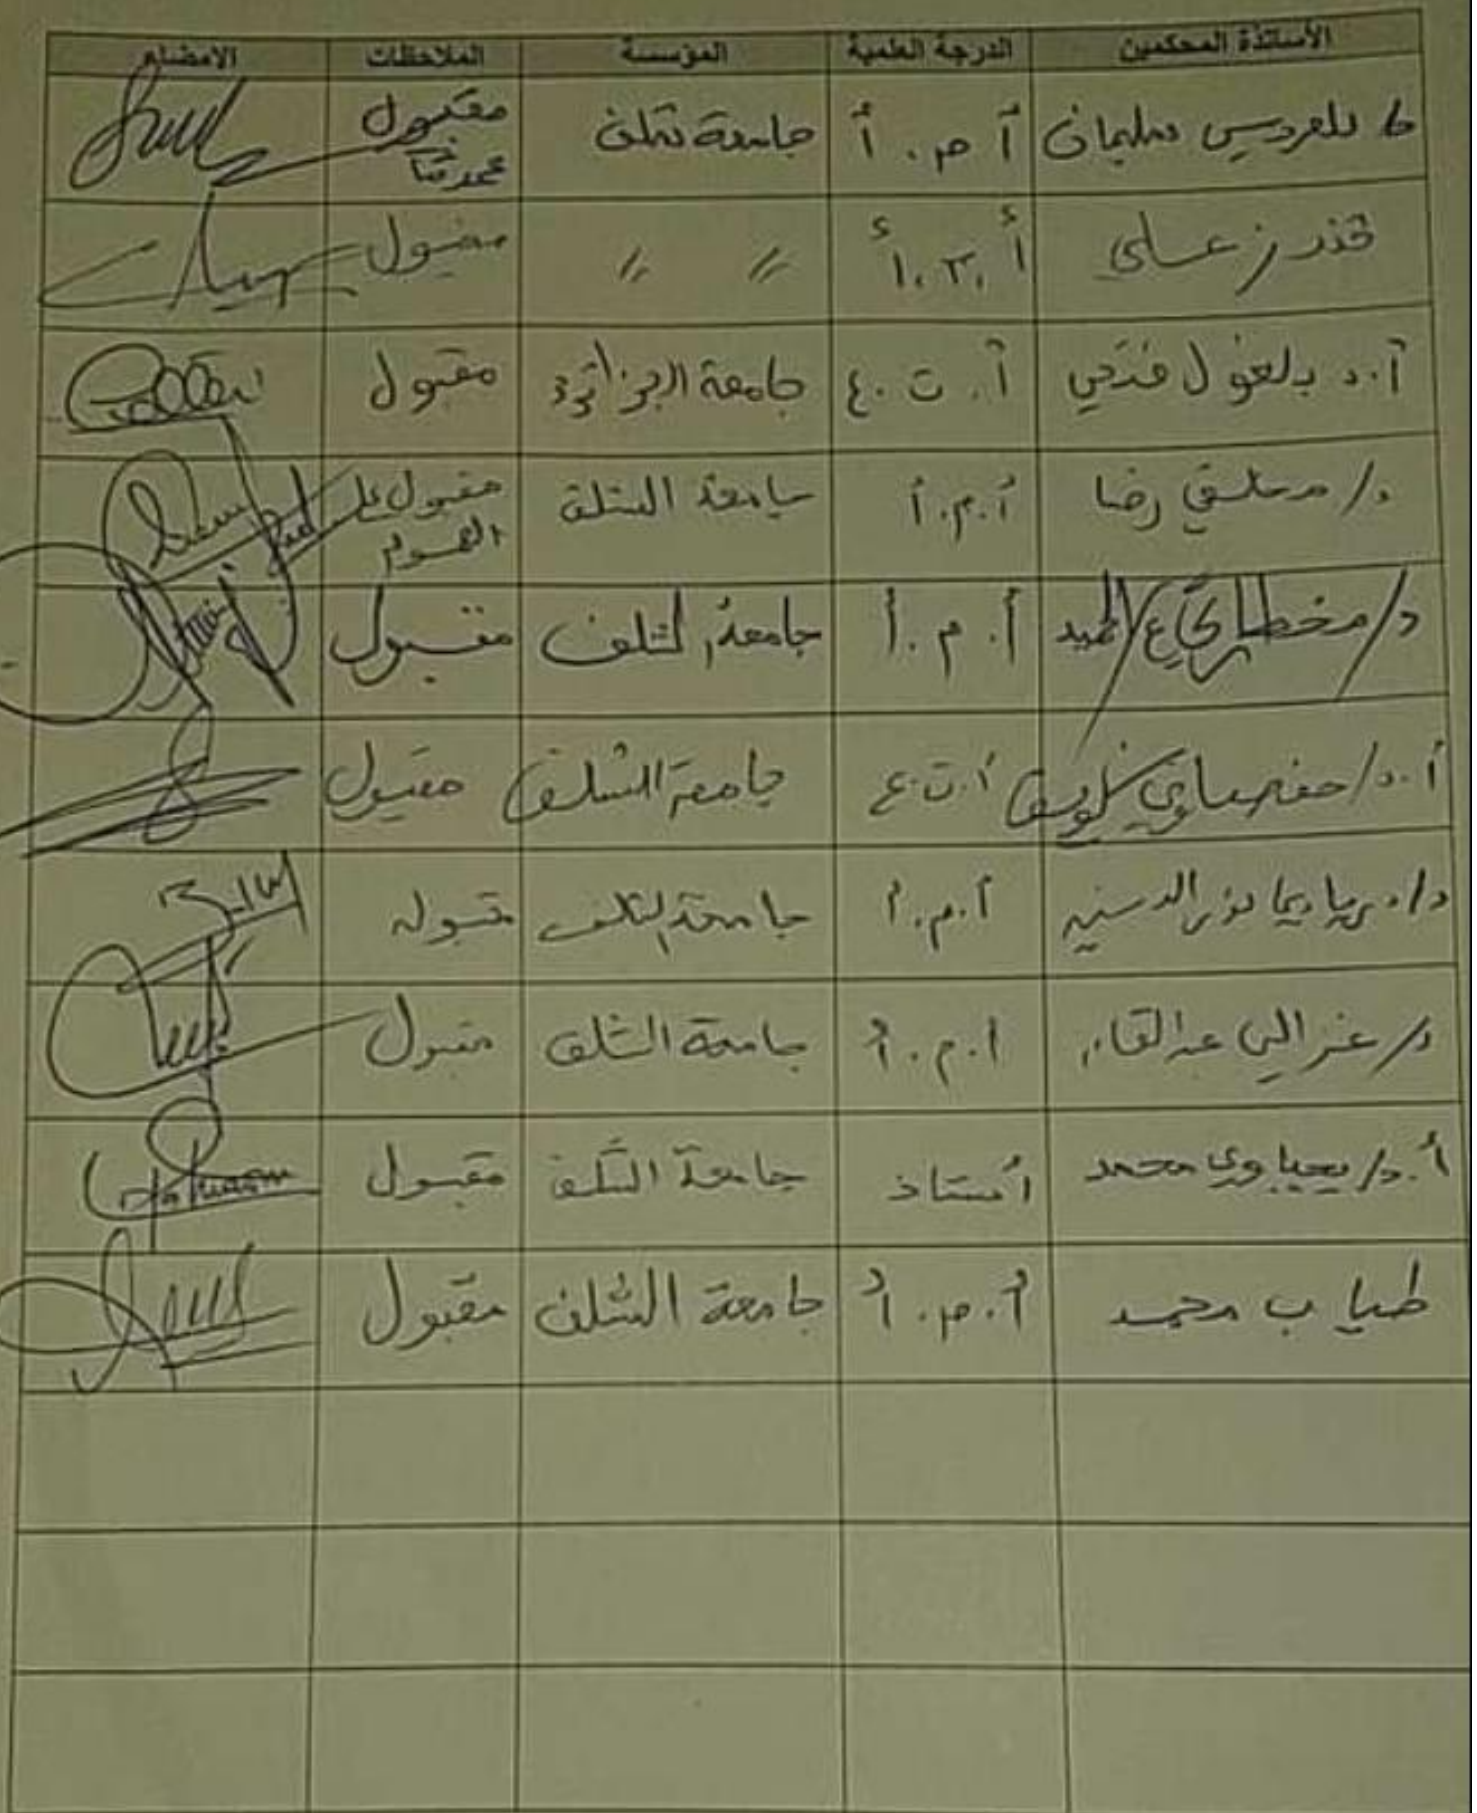 الأساتذة المحكمين الدرجة العلمية المؤسسة الملاحظات الامضاء
بلعروسي سليمان أ.م.أ جامعة شلف مقبول
قندرز علي أ.م.أ // // مقبول
أ.د بلغول فتحي أ.ت.ع جامعة الجزائر3 مقبول
د/ معلقي رضا أ.م.أ جامعة الشلف مقبول على
العموم
د/ مخطاري ع/الحميد أ.م.أ جامعة الشلف مقبول
أ.د/ حفصاوي أ.ت.ع جامعة الشلف مقبول
د/ نور الدين أ.م.أ جامعة الشلف مقبول
د/ غزالي عبد القادر أ.م.أ جامعة الشلف مقبول
أ.د/ يحياوي محمد أستاذ جامعة الشلف مقبول
طياب محمد أ.م.أ جامعة الشلف مقبول